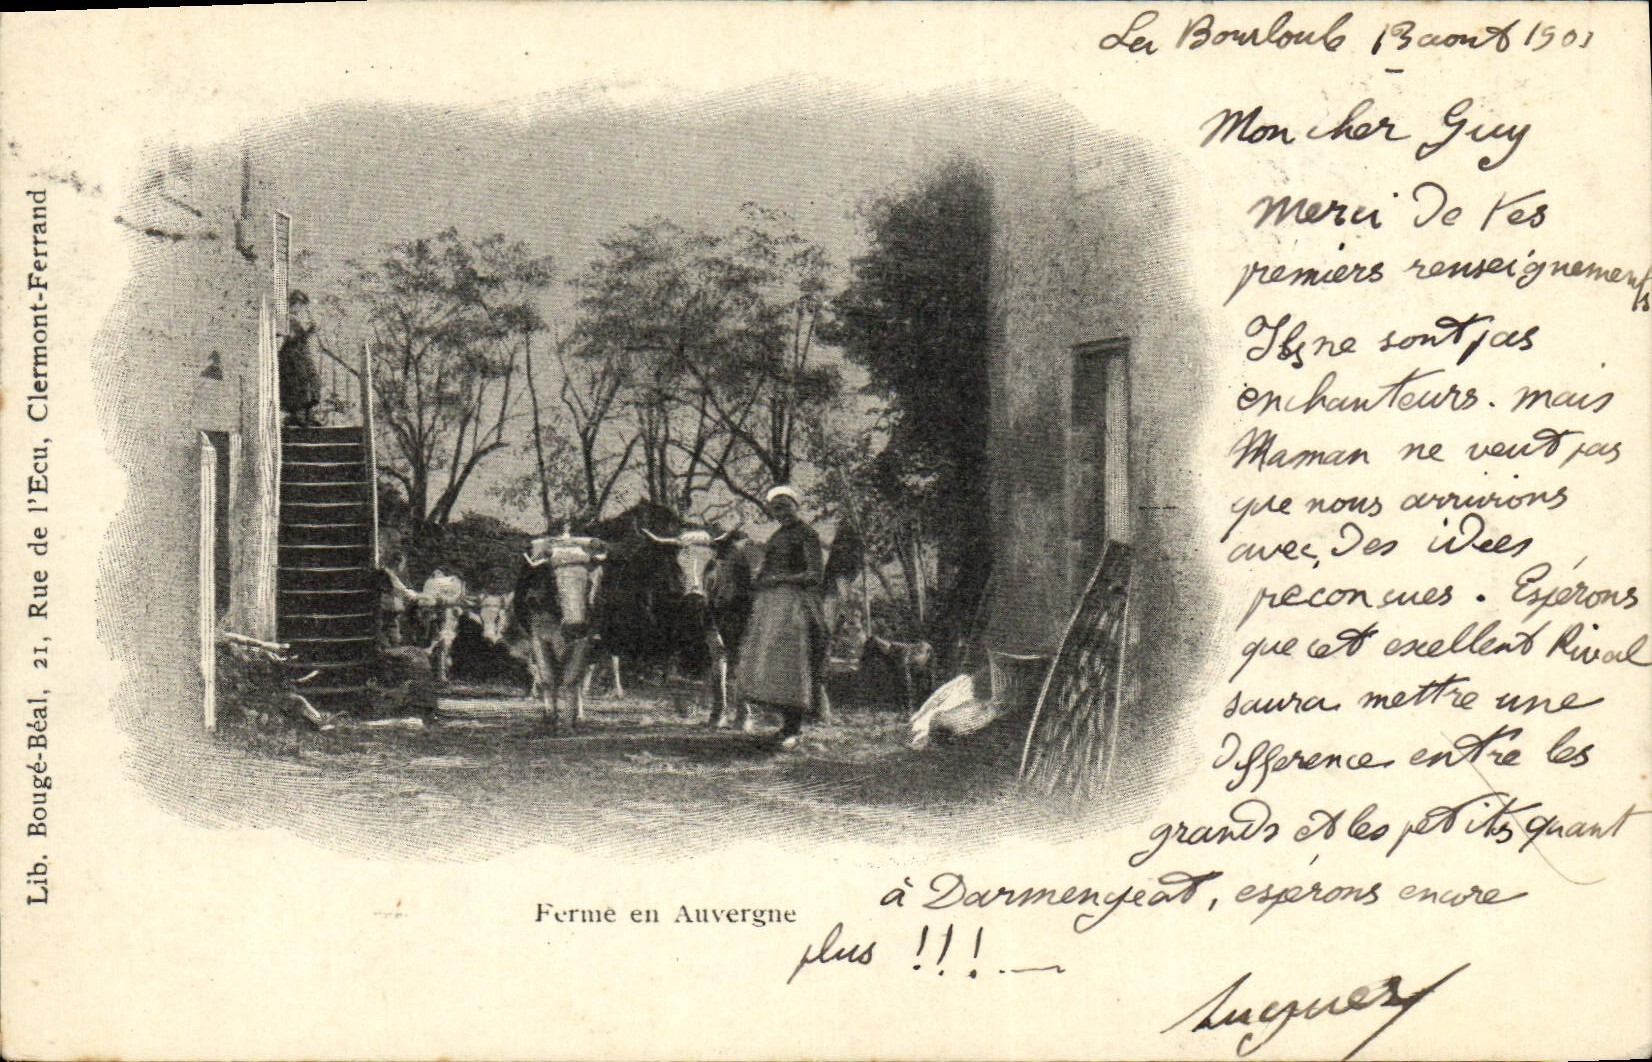 La Bourboule 13 aout 1901
Mon cher Guy
Merci de tes
premiers renseignements
Ils ne sont pas
enchanteurs. mais
Maman ne veut pas
que nous arrivions
avec des idées
preconcues. Espérons
que cet excellent Rival
saura mettre une
difference entre les
grands et les petits quant
à Darmengeat, espérons encore
plus !!!.—
Hugues
Ferme en Auvergne
Lib. Bougé-Béal, 21, Rue de l'Ecu, Clermont-Ferrand